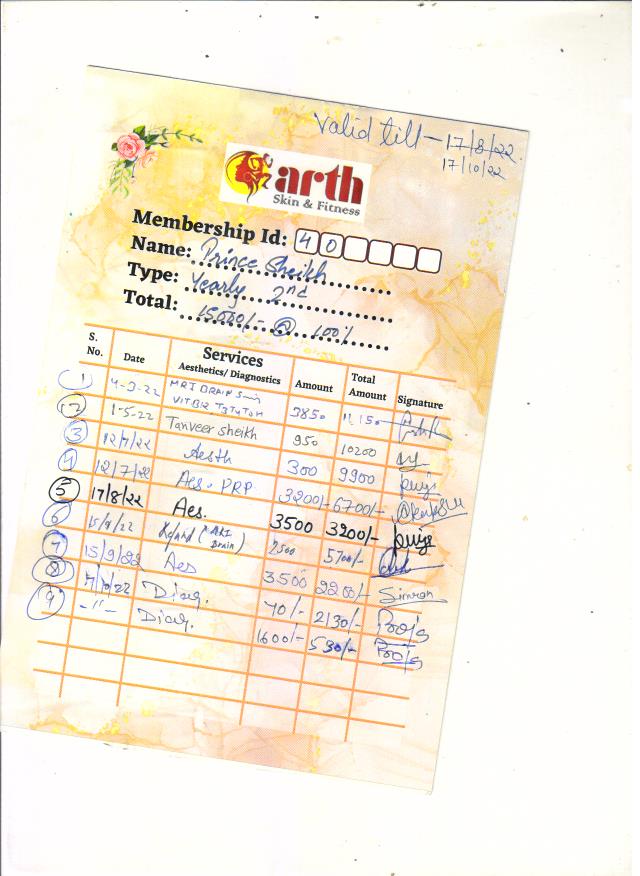 Valid till - 17/8/22
17/10/22
arth
Skin & Fitness
Membership Id: 40
Name: Prince Sheikh
Type: Yearly 2nd
Total: 15000/- @ 100%
S. No. Date Services Aesthetics/ Diagnostics Amount Total Amount Signature
1 4-3-22 MRI BRAIN VIT B12 T3T4TSH 3850 11150
2 1-5-22 Tanveer sheikh 950 10200
3 12/7/22 Aesth 300 9900
4 12/7/22 Aes. PRP 3200/- 6700/-
5 17/8/22 Aes. 3500 3200/-
6 15/9/22 Refund (MRI Brain) 2500 5700/-
7 15/9/22 Aes 3500 2200/- Simran
8 7/10/22 Diag. 70/- 2130/- Pooja
9 -"- Diag. 1600/- 530/- Pooja